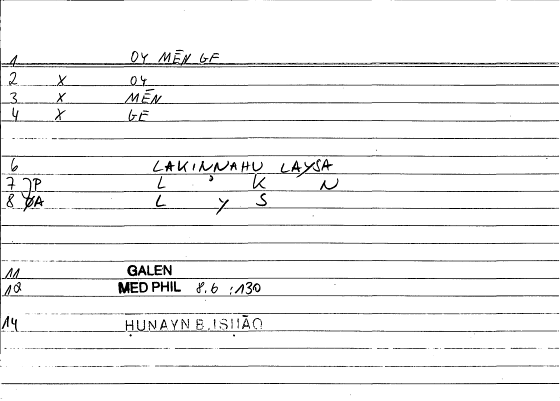 1 OY MĒN GE
2 X OY
3 X MĒN
4 X GE
6 LAKINNAHU LAYSA
7 JP L ʾ K N
8 ØA L Y S
11 GALEN
12 MED PHIL 8.6 :130
14 ḤUNAYN B. ISḤĀQ